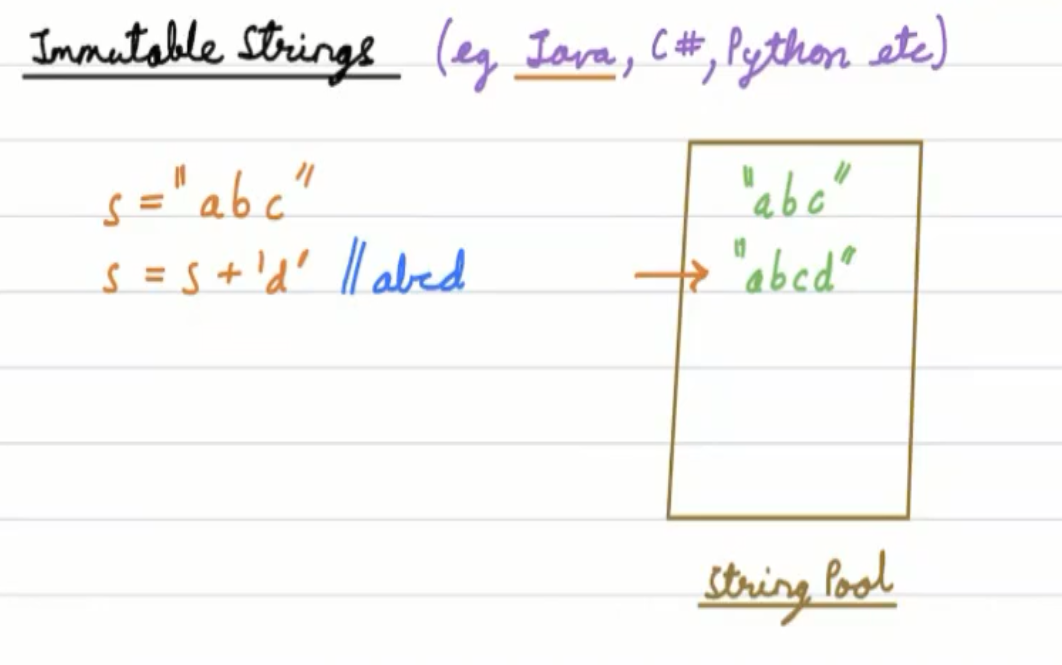 Immutable Strings (eg Java, C#, Python etc)
s = "abc"
s = s + 'd' // abcd
"abc"
→ "abcd"
String Pool